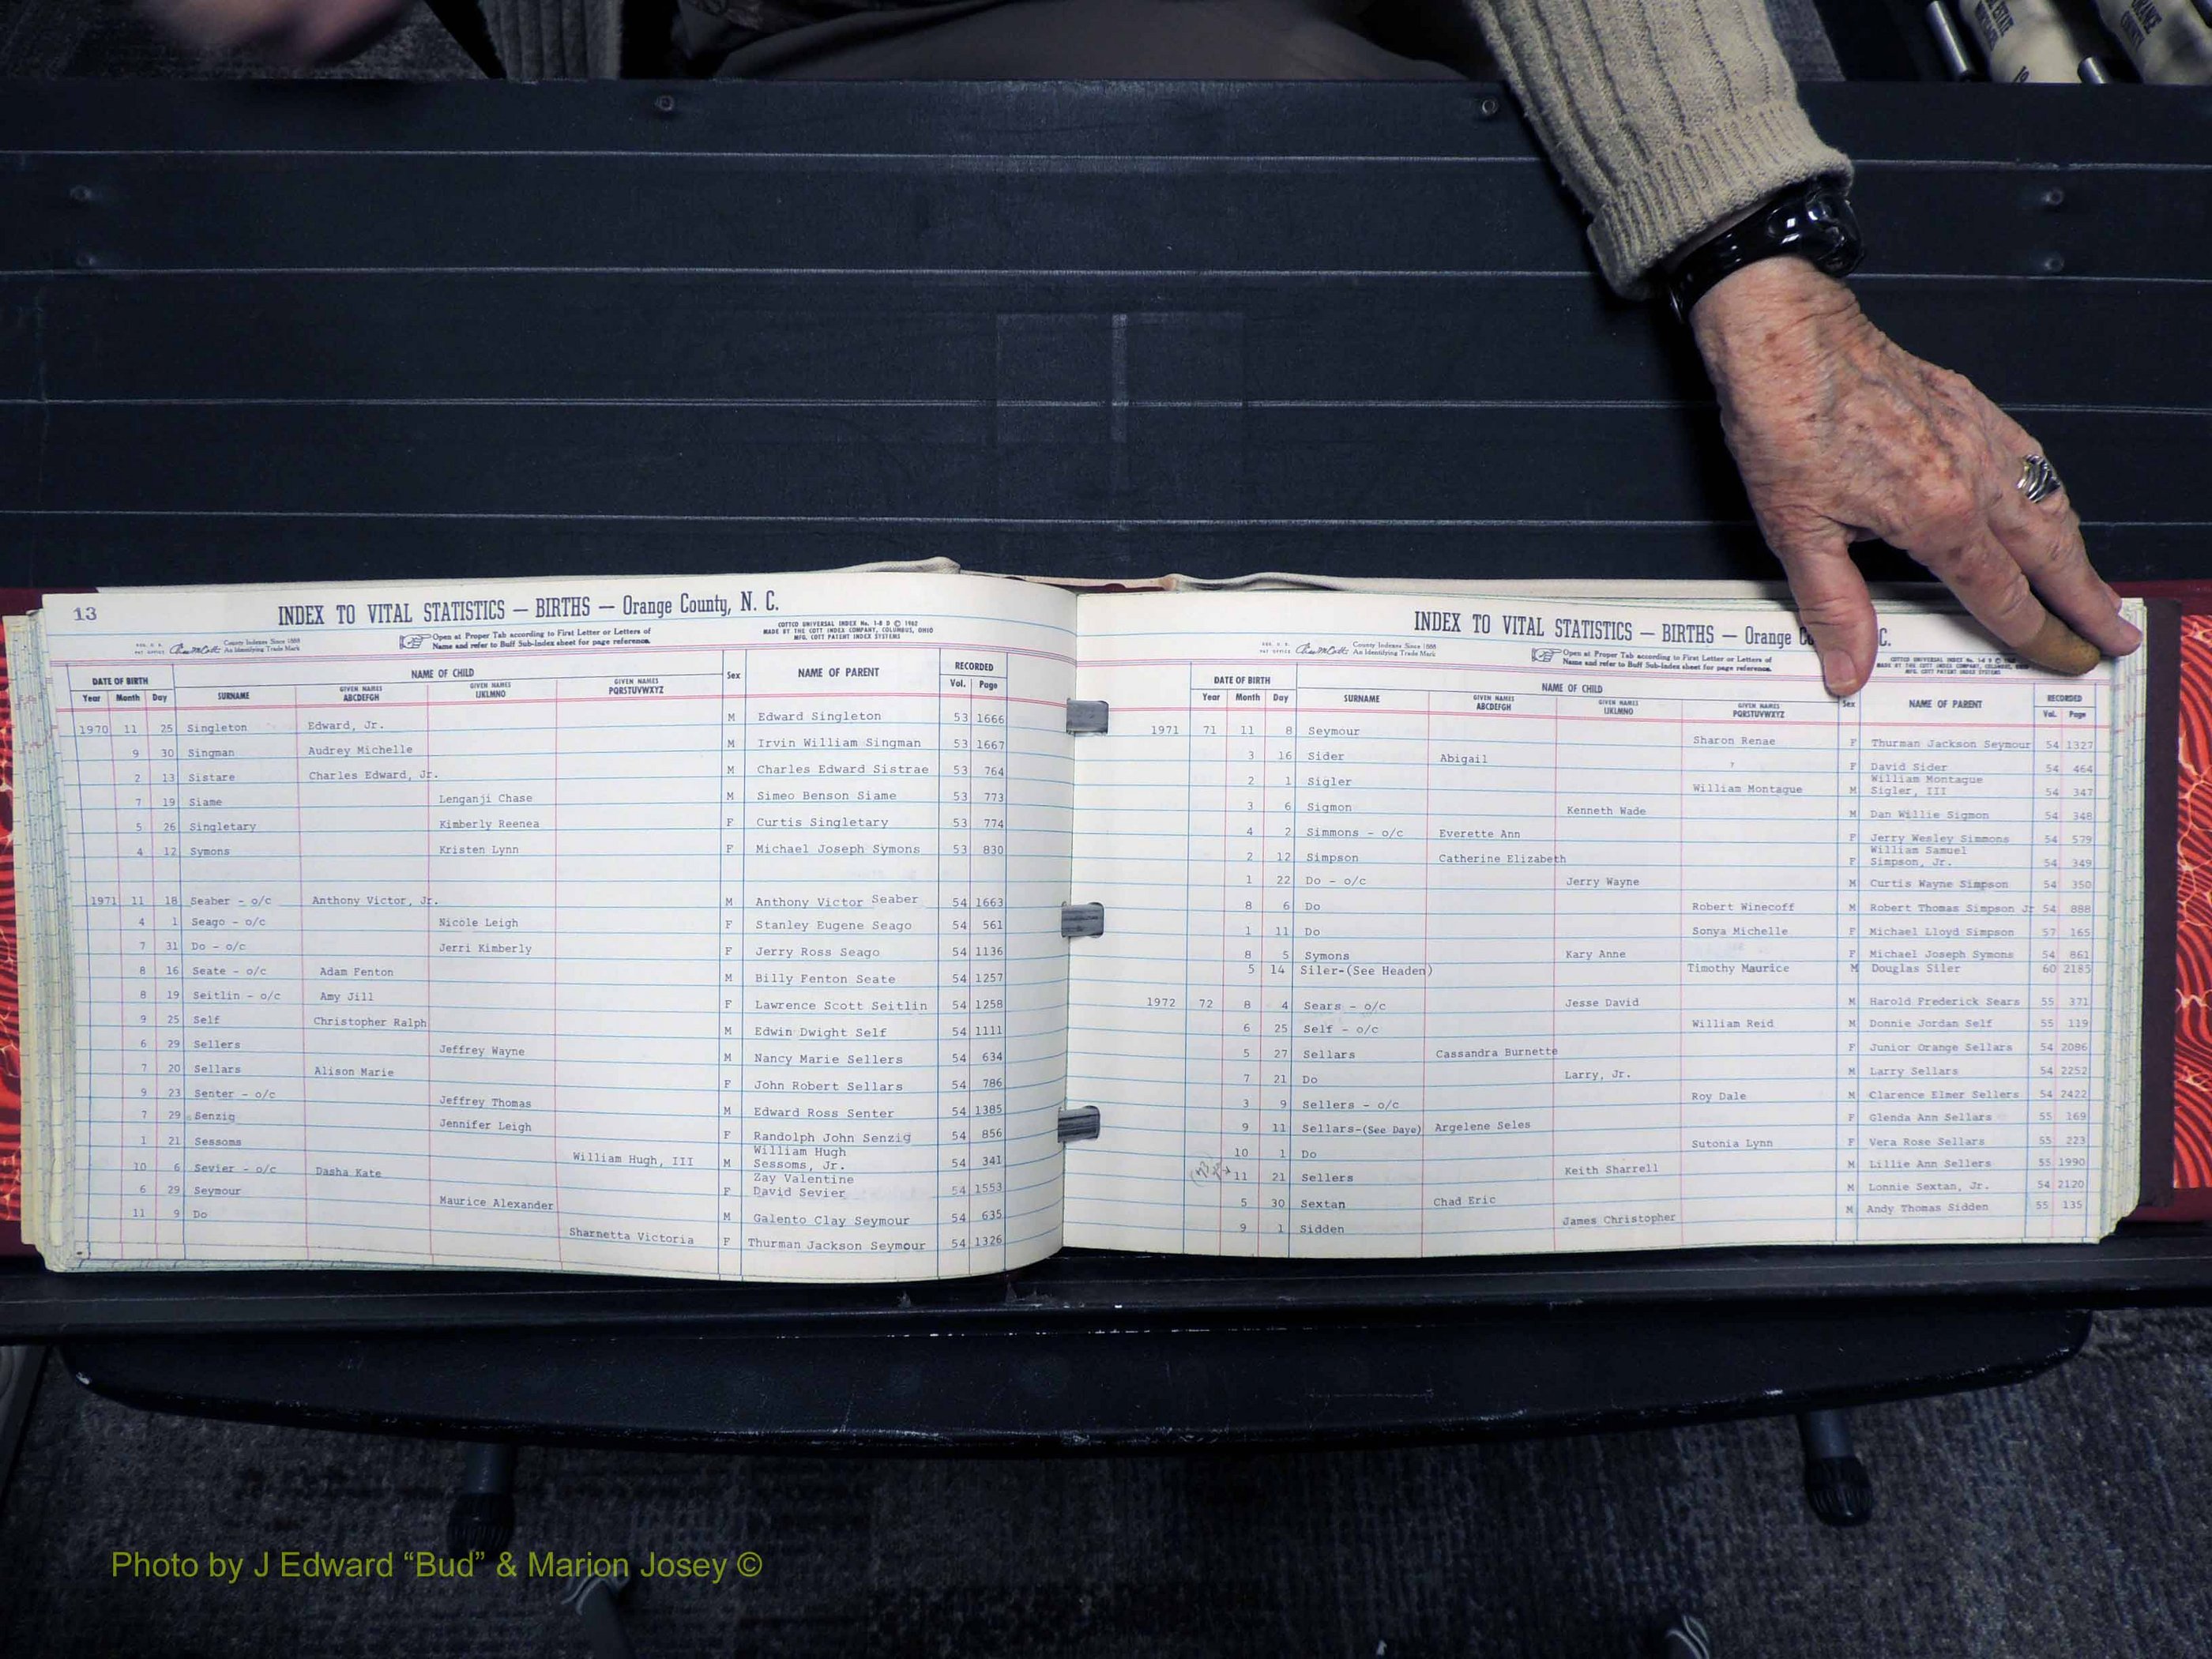 13
INDEX TO VITAL STATISTICS — BIRTHS — Orange County, N. C.
County Indexes Since 1888
An Identifying Trade Mark
Open at Proper Tab according to First Letter or Letters of
Name and refer to Buff Sub-Index sheet for page reference.
COTTCO UNIVERSAL INDEX No. 1-8 D © 1962
MADE BY THE COTT INDEX COMPANY, COLUMBUS, OHIO
MFG. COTT PATENT INDEX SYSTEMS
DATE OF BIRTH NAME OF CHILD Sex NAME OF PARENT RECORDED
Year Month Day SURNAME GIVEN NAMES ABCDEFGH GIVEN NAMES IJKLMNO GIVEN NAMES PQRSTUVWXYZ Vol. Page
1970 11 25 Singleton Edward, Jr. M Edward Singleton 53 1666
9 30 Singman Audrey Michelle M Irvin William Singman 53 1667
2 13 Sistare Charles Edward, Jr. M Charles Edward Sistrae 53 764
7 19 Siame Lenganji Chase M Simeo Benson Siame 53 773
5 26 Singletary Kimberly Reenea F Curtis Singletary 53 774
4 12 Symons Kristen Lynn F Michael Joseph Symons 53 830
1971 11 18 Seaber - o/c Anthony Victor, Jr. M Anthony Victor Seaber 54 1663
4 1 Seago - o/c Nicole Leigh F Stanley Eugene Seago 54 561
7 31 Do - o/c Jerri Kimberly F Jerry Ross Seago 54 1136
8 16 Seate - o/c Adam Fenton M Billy Fenton Seate 54 1257
8 19 Seitlin - o/c Amy Jill F Lawrence Scott Seitlin 54 1258
9 25 Self Christopher Ralph M Edwin Dwight Self 54 1111
6 29 Sellers Jeffrey Wayne M Nancy Marie Sellers 54 634
7 20 Sellars Alison Marie F John Robert Sellars 54 786
9 23 Senter - o/c Jeffrey Thomas M Edward Ross Senter 54 1385
7 29 Senzig Jennifer Leigh F Randolph John Senzig 54 856
1 21 Sessoms William Hugh, III M William Hugh Sessoms, Jr. 54 341
10 6 Sevier - o/c Dasha Kate F Zay Valentine David Sevier 54 1553
6 29 Seymour Maurice Alexander M Galento Clay Seymour 54 635
11 9 Do Sharnetta Victoria F Thurman Jackson Seymour 54 1326
INDEX TO VITAL STATISTICS — BIRTHS — Orange Co C.
County Indexes Since 1888
An Identifying Trade Mark
Open at Proper Tab according to First Letter or Letters of
Name and refer to Buff Sub-Index sheet for page reference.
DATE OF BIRTH NAME OF CHILD Sex NAME OF PARENT RECORDED
Year Month Day SURNAME GIVEN NAMES ABCDEFGH GIVEN NAMES IJKLMNO GIVEN NAMES PQRSTUVWXYZ Vol. Page
1971 71 11 8 Seymour Sharon Renae F Thurman Jackson Seymour 54 1327
3 16 Sider Abigail F David Sider 54 464
2 1 Sigler William Montague M William Montague Sigler, III 54 347
3 6 Sigmon Kenneth Wade M Dan Willie Sigmon 54 348
4 2 Simmons - o/c Everette Ann F Jerry Wesley Simmons 54 579
2 12 Simpson Catherine Elizabeth F William Samuel Simpson, Jr. 54 349
1 22 Do - o/c Jerry Wayne M Curtis Wayne Simpson 54 350
8 6 Do Robert Winecoff M Robert Thomas Simpson Jr 54 888
1 11 Do Sonya Michelle F Michael Lloyd Simpson 57 165
8 5 Symons Kary Anne F Michael Joseph Symons 54 861
5 14 Siler-(See Headen) Timothy Maurice M Douglas Siler 60 2185
1972 72 8 4 Sears - o/c Jesse David M Harold Frederick Sears 55 371
6 25 Self - o/c William Reid M Donnie Jordan Self 55 119
5 27 Sellars Cassandra Burnette F Junior Orange Sellars 54 2086
7 21 Do Larry, Jr. M Larry Sellars 54 2252
3 9 Sellers - o/c Roy Dale M Clarence Elmer Sellers 54 2422
9 11 Sellars-(See Daye) Argelene Seles F Glenda Ann Sellars 55 169
10 1 Do Sutonia Lynn F Vera Rose Sellars 55 223
11 21 Sellers Keith Sharrell M Lillie Ann Sellers 55 1990
5 30 Sextan Chad Eric M Lonnie Sextan, Jr. 54 2120
9 1 Sidden James Christopher M Andy Thomas Sidden 55 135
Photo by J Edward “Bud” & Marion Josey ©